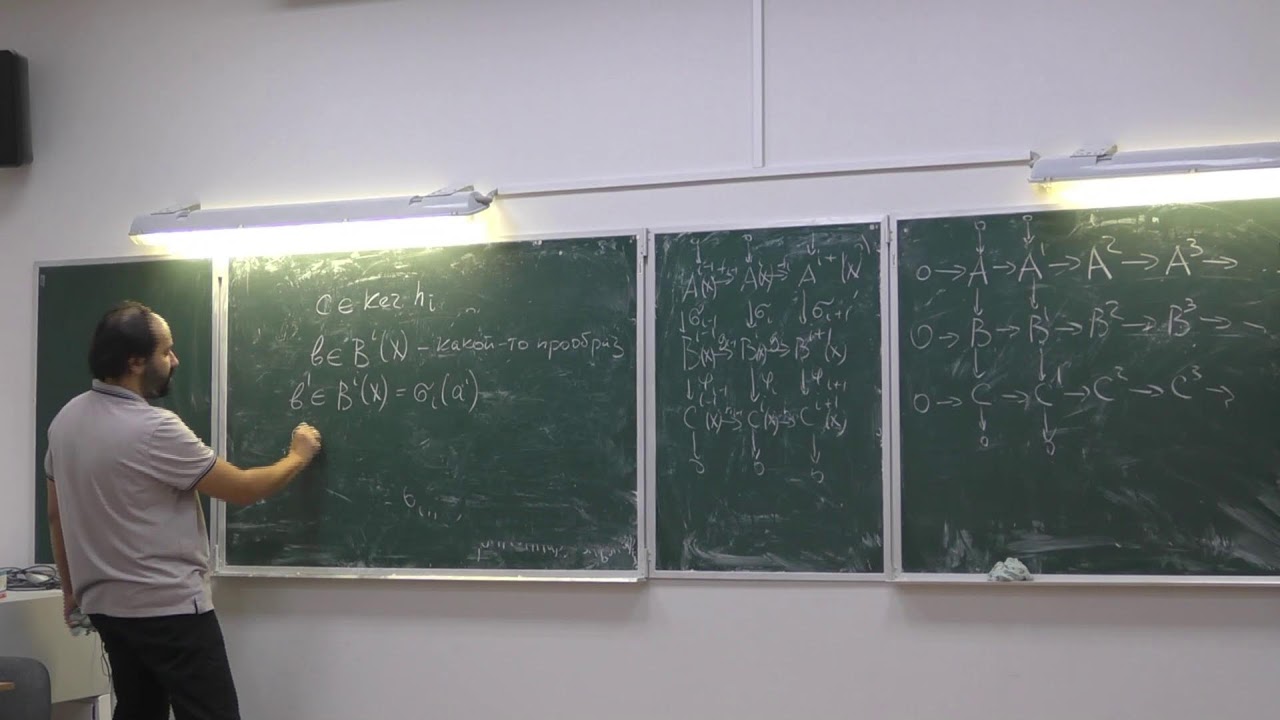 c ∈ ker hᵢ
в ∈ Bⁱ(X) – какой-то прообраз
в' ∈ Bⁱ(X) = σᵢ(a')
0 0
Aⁱ⁻¹(X) → Aⁱ(X) → Aⁱ⁺¹(X)
↓σᵢ₋₁ ↓σᵢ ↓σᵢ₊₁
Bⁱ⁻¹(X) → Bⁱ(X) → Bⁱ⁺¹(X)
↓φᵢ₋₁ ↓φᵢ ↓φᵢ₊₁
Cⁱ⁻¹(X) → Cⁱ(X) → Cⁱ⁺¹(X)
↓ ↓ ↓
0 0 0
0 0
↓ ↓
0 → A → A¹ → A² → A³ →
↓ ↓
0 → B → B¹ → B² → B³ → ...
↓ ↓
0 → C → C¹ → C² → C³ →
↓ ↓
0 0